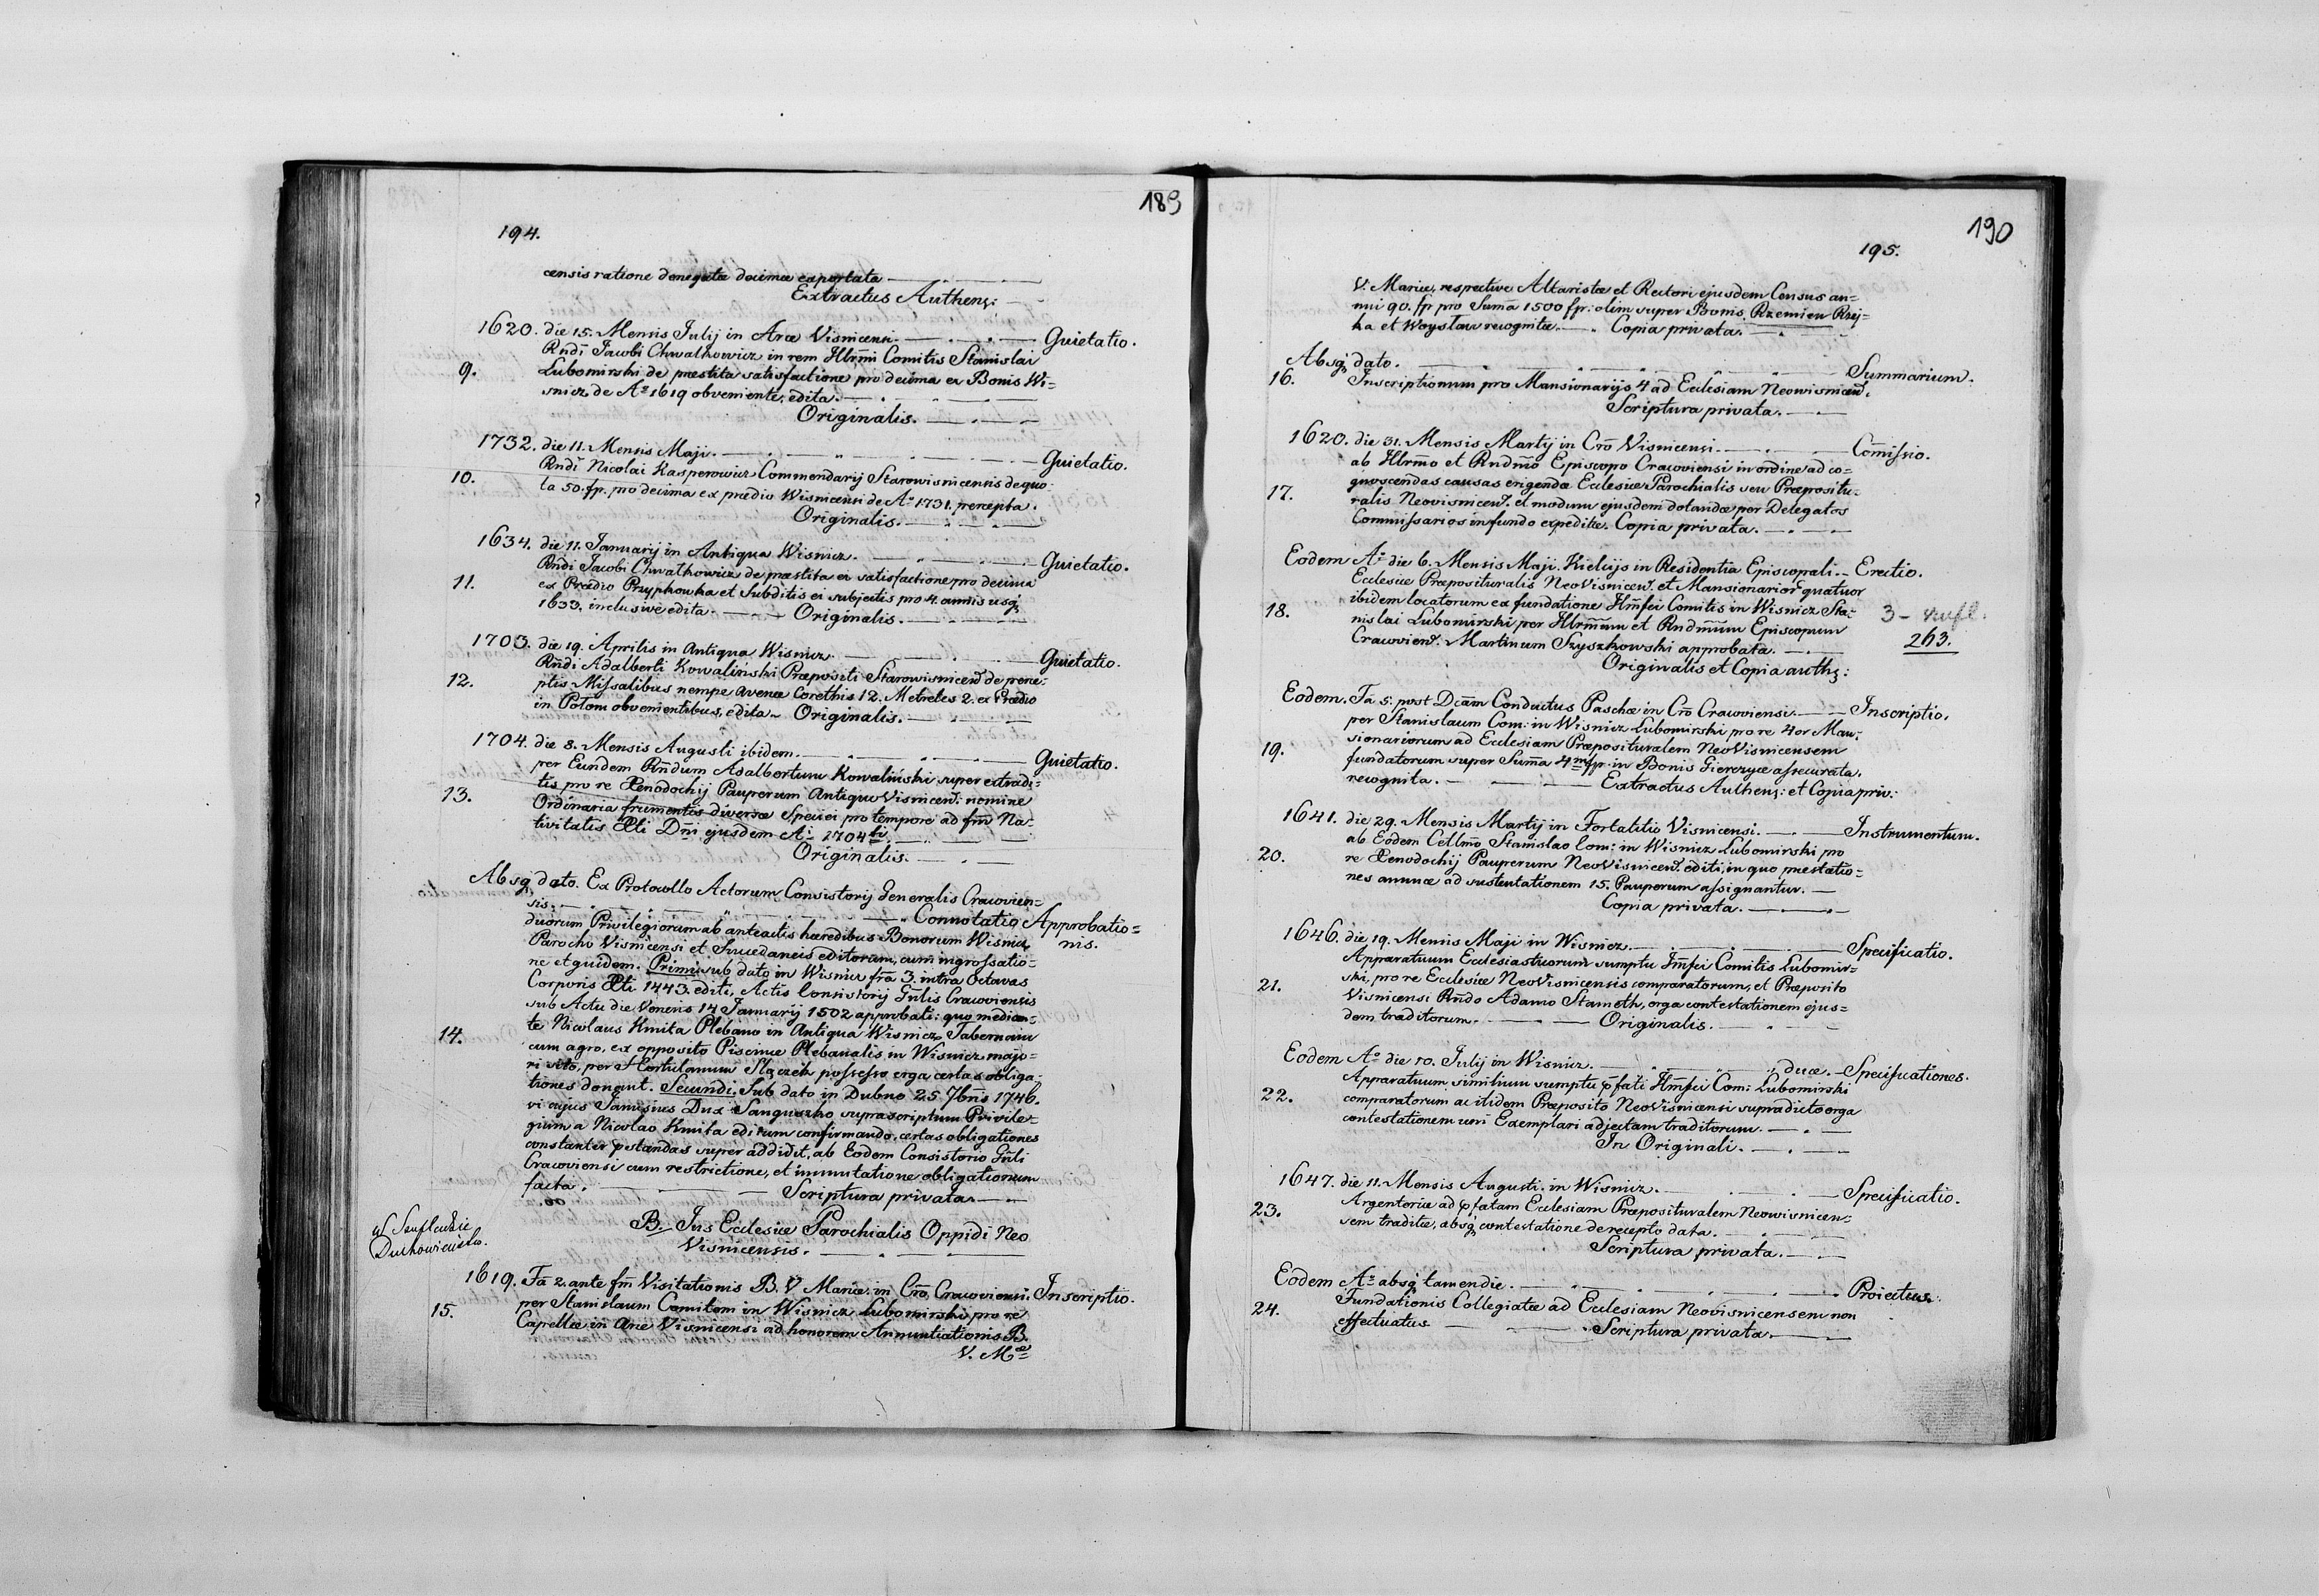 189
194.
censis ratione denegatæ decimæ exportata
Extractus Authenz:
1620. die 15. Mensis Julij in Arce Visnicensi. Quietatio.
Rndi Jacobi Chwalkowicz in rem Illrmi Comitis Stanislai
9. Lubomirski de præstita satisfactione pro decima ex Bonis Wi=
snicz de Aº 1619 obveniente, edita.
Originalis.
1732. die 11. Mensis Maji. Quietatio.
Rndi Nicolai Kasperowicz Commendarij Starowisnicensis de quo
10. ta 50. fp. pro decima ex prædio Wisnicensi de Aº 1731. percepta.
Originalis.
1634. die 11. Januarij in Antiqua Wisnicz. Quietatio.
Rndi Jacobi Chwalkowicz de præstita ei satisfactione pro decima
11. ex Prædio Przyphowka et Subditis ei subjectis pro 4. annis usq
1633. inclusive edita. Originalis.
1703. die 19. Aprilis in Antiqua Wisnicz. Quietatio.
Rndi Adalberti Kowaliński Præpositi Starowisnicen de perce=
12. ptis Missalibus nempe avenæ Corethis 12. Metretes 2. ex Prædio
in Polom obvenientibus, edita. Originalis.
1704. die 8. Mensis Augusti ibidem. Quietatio.
per Eundem Rndum Adalbertum Kowaliński super extradi=
13. tis pro re Xenodochij Pauperum Antiquo Visnicen: nomine
Ordinaria frumentos diversæ Speciei pro tempore ad fm Na=
tivitatis Xti Dni ejusdem Ai 1704ti
Originalis.
Absq dato. Ex Protocollo Actorum Consistorij Generalis Cracovien=
sis. Connotatio Approbatio=
duorum Privilegiorum ab anteactis hæredibus Bonorum Wisnicz nis.
Parocho Visnicensi et Succedaneis editorum, cum ingrossatio=
ne et quidem. Primi sub dato in Wisnicz fra 3. intra Octavas
Corporis Xti 1443. editi, Actis Consistorij Gnlis Cracoviensis
sub Actu die Veneris 14 Januarij 1502 approbati: quo median=
14. te Nicolaus Kmita Plebano in Antiqua Wisnicz Tabernam
cum agro, ex opposito Piscinæ Plebanalis in Wisnicz majo=
ri sito, per Hortulanum Slaczek possesso erga certas obliga=
tiones donant. Secundi. Sub dato in Dubno 25. 7bris 1746.
vi cujus Janusius Dux Sanguszko suprascriptum Privile=
gium a Nicolao Kmita editum confirmando, certas obligationes
constanter pstandas super addidit, ab Eodem Consistorio Gnli
Cracoviensi cum restrictione, et immutatione obligationum
facta. Scriptura privata.
B. Jus Ecclesiæ Parochialis Oppidi Neo
Visnicensis.
w Szufladzie
Duchowieństo.
1619. Fa 2. ante fm Visitationis B. V Mariæ in Cro Cracoviensi. Inscriptio.
15. per Stanislaum Comitem in Wisnicz Lubomirski pro re
Capellæ in Arce Visnicensi ad honorem Annuntiationis B.
V. Mæ
190
195.
V: Mariæ, respective Altaristæ et Rectori ejusdem Census an=
nui 90. fp pro Suma 1500 fp: olim super Bonis Rzemien Rzej=
ka et Woyslaw recognitæ. Copia privata.
Absq dato. Summarium.
16. Inscriptionum pro Mansionarijs 4 ad Ecclesiam Neowisnicen.
Scriptura privata.
1620. die 31. Mensis Martij in Cro Visnicensi. Comissio.
ab Illrmo et Rndmo Episcopo Cracoviensi in ordine ad co=
17. gnoscendas causas erigendæ Ecclesiæ Parochialis seu Præpositu=
ralis Neovisnicen. et modum ejusdem dotandæ per Delegatos
Commissarios in fundo expeditæ. Copia privata.
Eodem Aº die 6. Mensis Maji. Kielcijs in Residentia Episcopali. Erectio.
Ecclesiæ Præposituralis NeoVisnicen. et Mansionarior Quatuor
18. ibidem locatorum ex fundatione Illmfci Comitis in Wisnicz Sta=
nislai Lubomirski per Illrmum et Rndmum Episcopum
Cracovien. Martinum Szyszkowski approbata.
3 - szufl.
263.
Originalis et Copia auth:
Eodem. Fa 5: post Dcam Conductus Paschæ in Cro Cracoviensi. Inscriptio.
per Stanislaum Com: in Wisnicz Lubomirski pro re 4or Man=
19. sionariorum ad Ecclesiam Præposituralem NeoVisnicensem
fundatorum super Suma 4m fp: in Bonis Gierczyce assecurata,
recognita. Extractus Authenz: et Copia priv:
1641. die 29. Mensis Martij in Fortalitio Visnicensi. Instrumentum.
ab Eodem Cellmo Stanislao Com: in Wisnicz Lubomirski pro
20. re Xenodochij Pauperum NeoVisnicen. editi, in quo præstatio=
nes annuæ ad sustentationem 15. Pauperum assignantur.
Copia privata.
1646. die 19. Mensis Maji in Wisnicz. Specificatio.
Apparatuum Ecclesiasticorum sumptu Imfci Comitis Lubomir=
21. ski, pro re Ecclesiæ NeoVisnicensis comparatorum, et Præposito
Visnicensi Rndo Adamo Stameth, erga contestationem ejus=
dem traditorum. Originalis.
Eodem Aº die 10. Julij in Wisnicz. duæ. Specificationes.
Apparatuum similium sumptu pfati Illmfci Com: Lubomirski
22. comparatorum ac itidem Præposito NeoVisnicensi supradicto erga
contestationem uni Exemplari adjectam traditorum.
In Originali.
1647. die 11. Mensis Augusti. in Wisnicz. Specificatio.
23. Argenteriæ ad pfatam Ecclesiam Præposituralem Neowisnicen=
sem traditæ, absq contestatione de recepto data.
Scriptura privata.
Eodem Aº absq tamen die. Proiectus.
24. Fundationis Collegiatæ ad Ecclesiam Neovisnicensem non
effectuatus Scriptura privata.